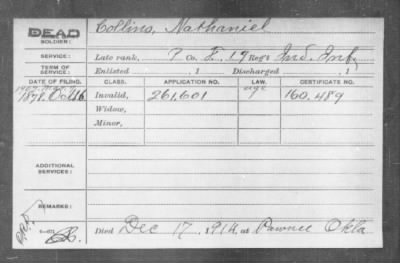 Collins, Nathaniel
DEAD
SOLDIER:
SERVICE: Late rank, P Co. I. 19 Reg't Ind. Inf.
TERM OF SERVICE: Enlisted 1 Discharged 1
DATE OF FILING. CLASS. APPLICATION NO. LAW. CERTIFICATE NO.
1878, Oct 16 Invalid, 261,601 age 160,489
Widow,
Minor,
ADDITIONAL SERVICES:
REMARKS:
Died Dec 17, 1914, at Pawnee Okla